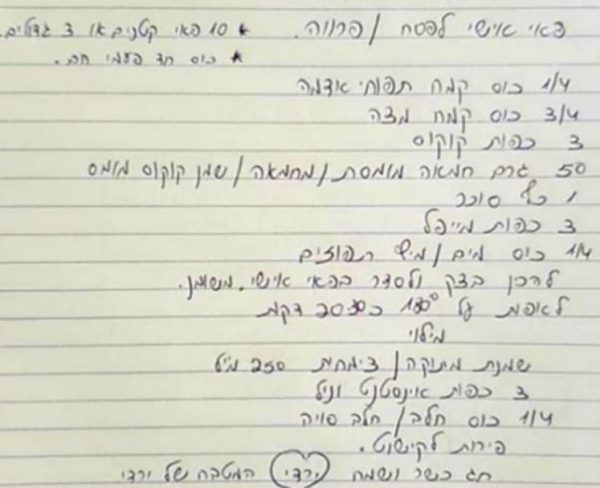 פאי אישי לפסח / פרווה. * 10 פאי קטנים או 3 גדולים.
* כוס חד פעמי חם.
1/4 כוס קמח תפוחי אדמה
3/4 כוס קמח מצה
3 כפות קוקוס
50 גרם חמאה מומסת / מחמאה / שמן קוקוס מומס
1 כף סוכר
3 כפות מייפל
1/4 כוס מים / מיץ תפוזים
להכין בצק ולסדר בפאי אישי משומן.
לאפות על 180° כ 20-30 דקות
מילוי
שמנת מתוקה / צמחית 250 מ"ל
3 כפות אינסטנט וניל
1/4 כוס חלב / חלב סויה
פירות לקישוט.
חג כשר ושמח ירדי המטבח של ירדי